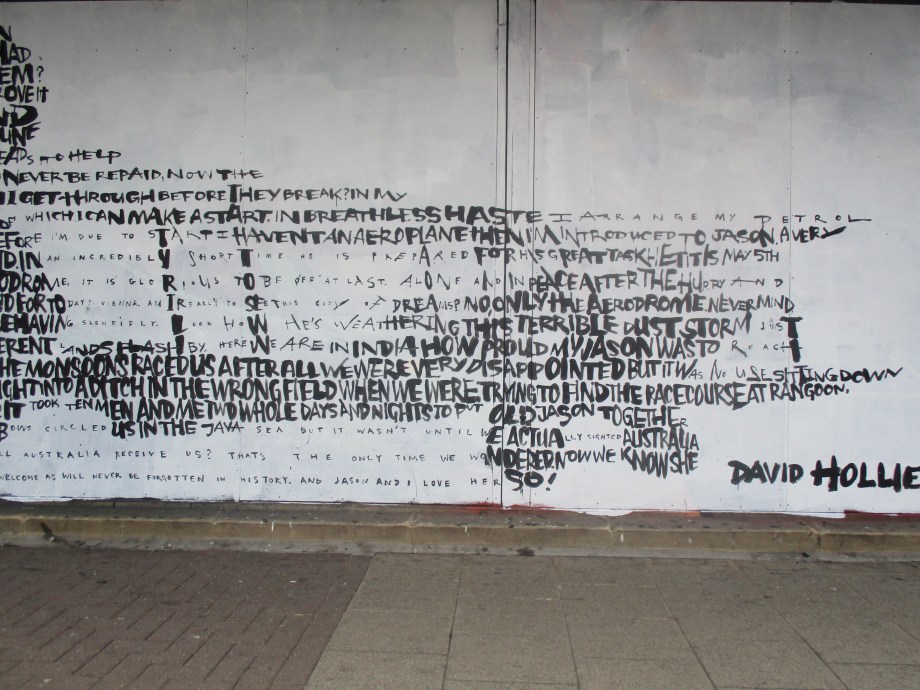 HAD
EM?
OVE IT
ND
UNE
EADS TO HELP
NEVER BE REPAID. NOW THE
I GET THROUGH BEFORE THEY BREAK? IN MY
WHICH I CAN MAKE A START. IN BREATHLESS HASTE I ARRANGE MY PETROL
EFORE I'M DUE TO START I HAVENT AN AEROPLANE THEN IM INTRODUCED TO JASON. A VERY
D. IN AN INCREDIBLY SHORT TIME HE IS PREPARED FOR HIS GREAT TASK. HE IT IS MAY 5TH
ODROME. IT IS GLORIOUS TO BE OFF AT LAST. ALONE AND IN PEACE AFTER THE HURRY AND
D FOR TODAY? VIENNA. AM I REALLY TO SEE THIS CITY OF DREAMS? NO, ONLY THE AERODROME. NEVER MIND
EHAVING SLENDIDLY. LOOK HOW HE'S WEATHERING THIS TERRIBLE DUST STORM JUST
ERENT LANDS FLASH BY. HERE WE ARE IN INDIA HOW PROUD MY JASON WAS TO REACH IT
HE MONSOONS RACED US AFTER ALL WE WERE VERY DISAPPOINTED BUT IT WAS NO USE SITTING DOWN
IGHT INTO A DITCH IN THE WRONG FIELD WHEN WE WERE TRYING TO FIND THE RACECOURSE AT RANGOON.
IT TOOK TEN MEN AND ME TWO WHOLE DAYS AND NIGHTS TO PUT OLD JASON TOGETHER
BOWS CIRCLED US IN THE JAVA SEA BUT IT WASN'T UNTIL WE ACTUALLY SIGHTED AUSTRALIA
LL AUSTRALIA RECEIVE US? THAT'S THE ONLY TIME WE WONDERED. NOW WE KNOW SHE
WELCOME AS WILL NEVER BE FORGOTTEN IN HISTORY. AND JASON AND I LOVE HER SO!
DAVID HOLLIE